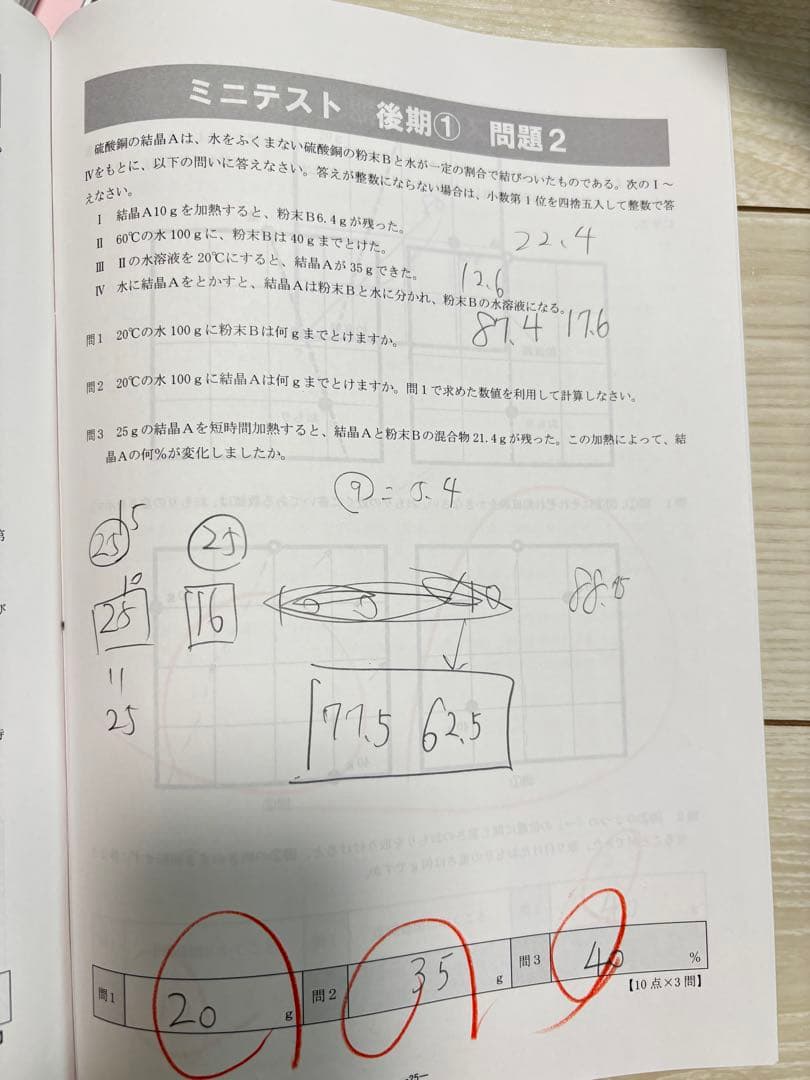 ミニテスト 後期① 問題2
硫酸銅の結晶Aは、水をふくまない硫酸銅の粉末Bと水が一定の割合で結びついたものである。次のⅠ～
Ⅳをもとに、以下の問いに答えなさい。答えが整数にならない場合は、小数第1位を四捨五入して整数で答
えなさい。
Ⅰ 結晶A10gを加熱すると、粉末B6.4gが残った。
Ⅱ 60℃の水100gに、粉末Bは40gまでとけた。
22.4
Ⅲ Ⅱの水溶液を20℃にすると、結晶Aが35gできた。
12.6
Ⅳ 水に結晶Aをとかすと、結晶Aは粉末Bと水に分かれ、粉末Bの水溶液になる。
87.4 17.6
問1 20℃の水100gに粉末Bは何gまでとけますか。
問2 20℃の水100gに結晶Aは何gまでとけますか。問1で求めた数値を利用して計算しなさい。
問3 25gの結晶Aを短時間加熱すると、結晶Aと粉末Bの混合物21.4gが残った。この加熱によって、結
晶Aの何%が変化しましたか。
⑨=5.4
15
25 25
10
25 16
88.
25
77.5 62.5
問1 20 g 問2 35 g 問3 40 %
【10点×3問】
-25-